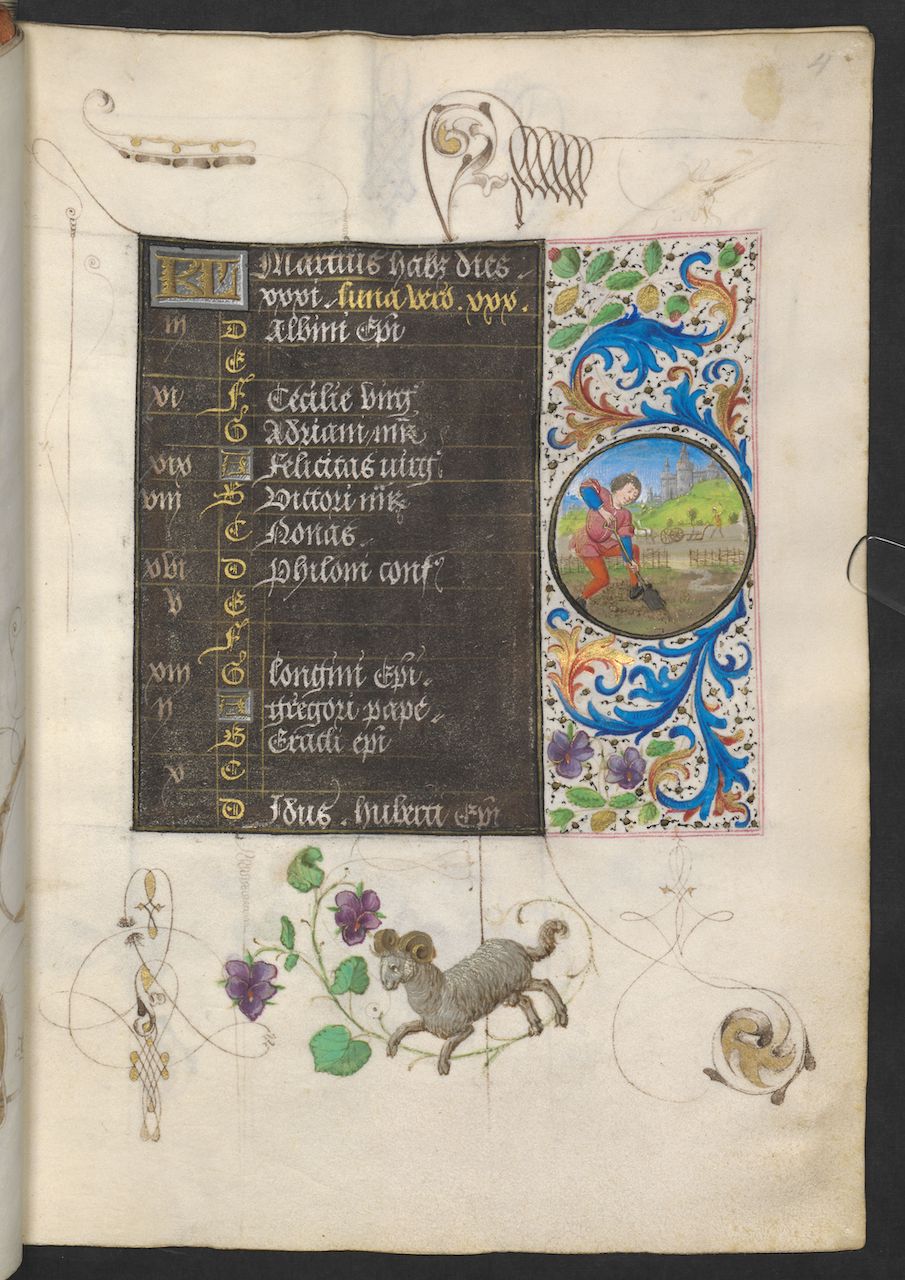 4
KL Martius habz dies
xxxi. luna vero. xxx.
iii D Albini Epi
E
vi F Cecilie virg
G Adriani mr
xix A Felicitas uirg
viii B Victori mr
C Nonas
xvi D Philoni conf
v E
F
xiii G longini Epi.
ii A gregori pape
B Eracli epi
x C
D Idus. huberti Epi